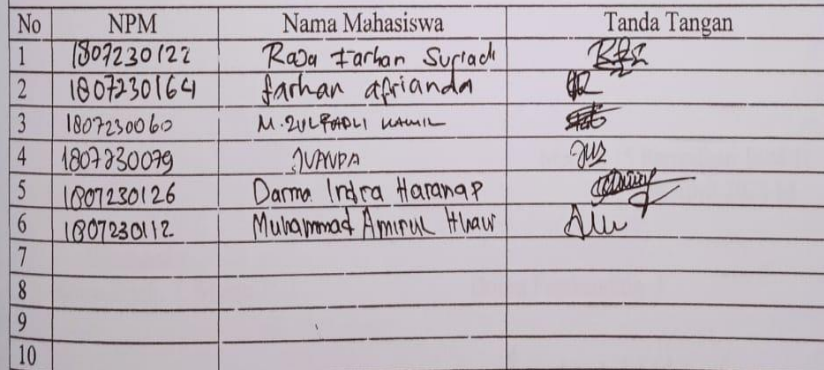 No NPM Nama Mahasiswa Tanda Tangan
1 1807230122 Raja Farhan Suriadi
2 1807230164 farhan afrianda
3 1807230060 M. ZULFADLI KAMIL
4 1807230079 JUANDA
5 1807230126 Darma Indra Harahap
6 1807230112 Muhammad Amirul
7
8
9
10